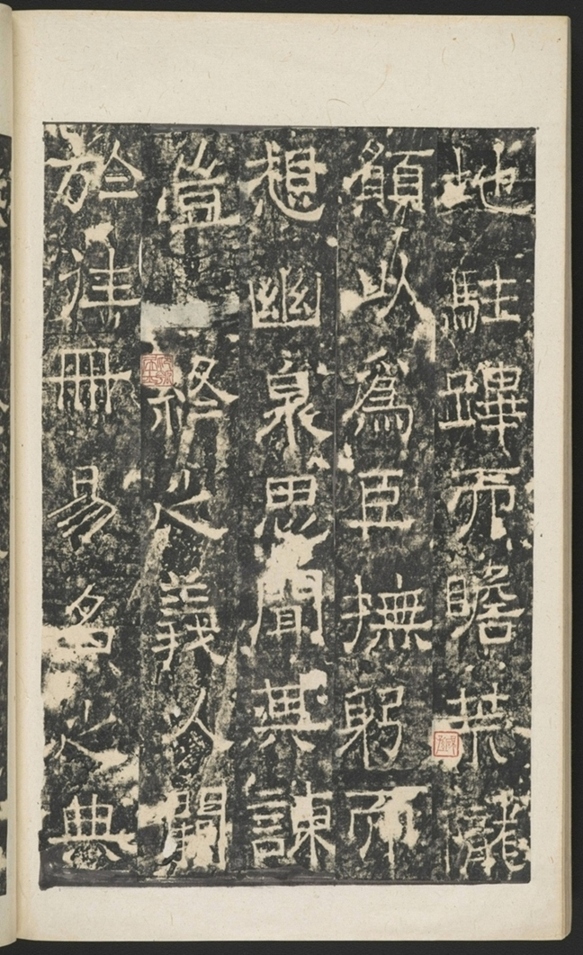 地駐蹕而瞻荒隴
願以爲臣撫躬而
想幽泉思聞其諫
豈終之義久闕
於往冊易名之典